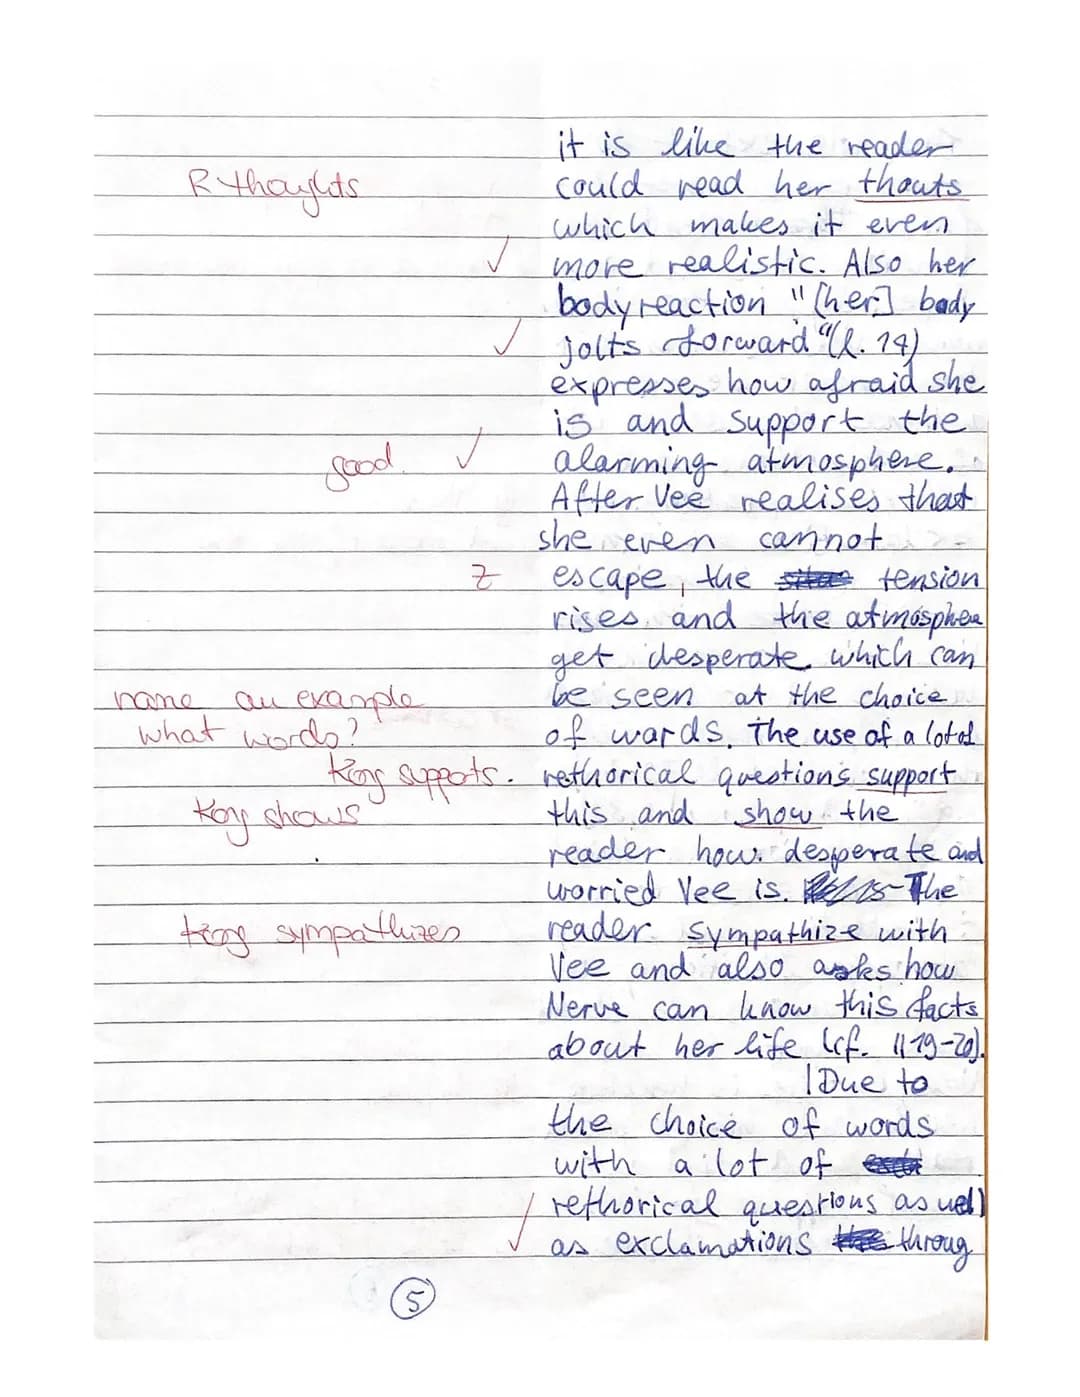 it is like the reader
R thoughts could read her thouts
which makes it even
more realistic. Also her
body reaction "[her] body
jolts forward" (l. 14)
expresses how afraid she
is and support the
good. alarming atmosphere.
After Vee realises that
she even cannot
Z escape, the tension
rises and the atmosphere
get desperate which can
name an example be seen at the choice
what words? of words. The use of a lot of
Kong supports. rethorical questions support
Kong shows this and show the
reader how desperate and
worried Vee is. The
Kong sympathizes reader sympathize with
Vee and also asks how
Nerve can know this facts
about her life (cf. ll 19-20).
Due to
the choice of words
with a lot of
rethorical questions as well
as exclamations throug
5